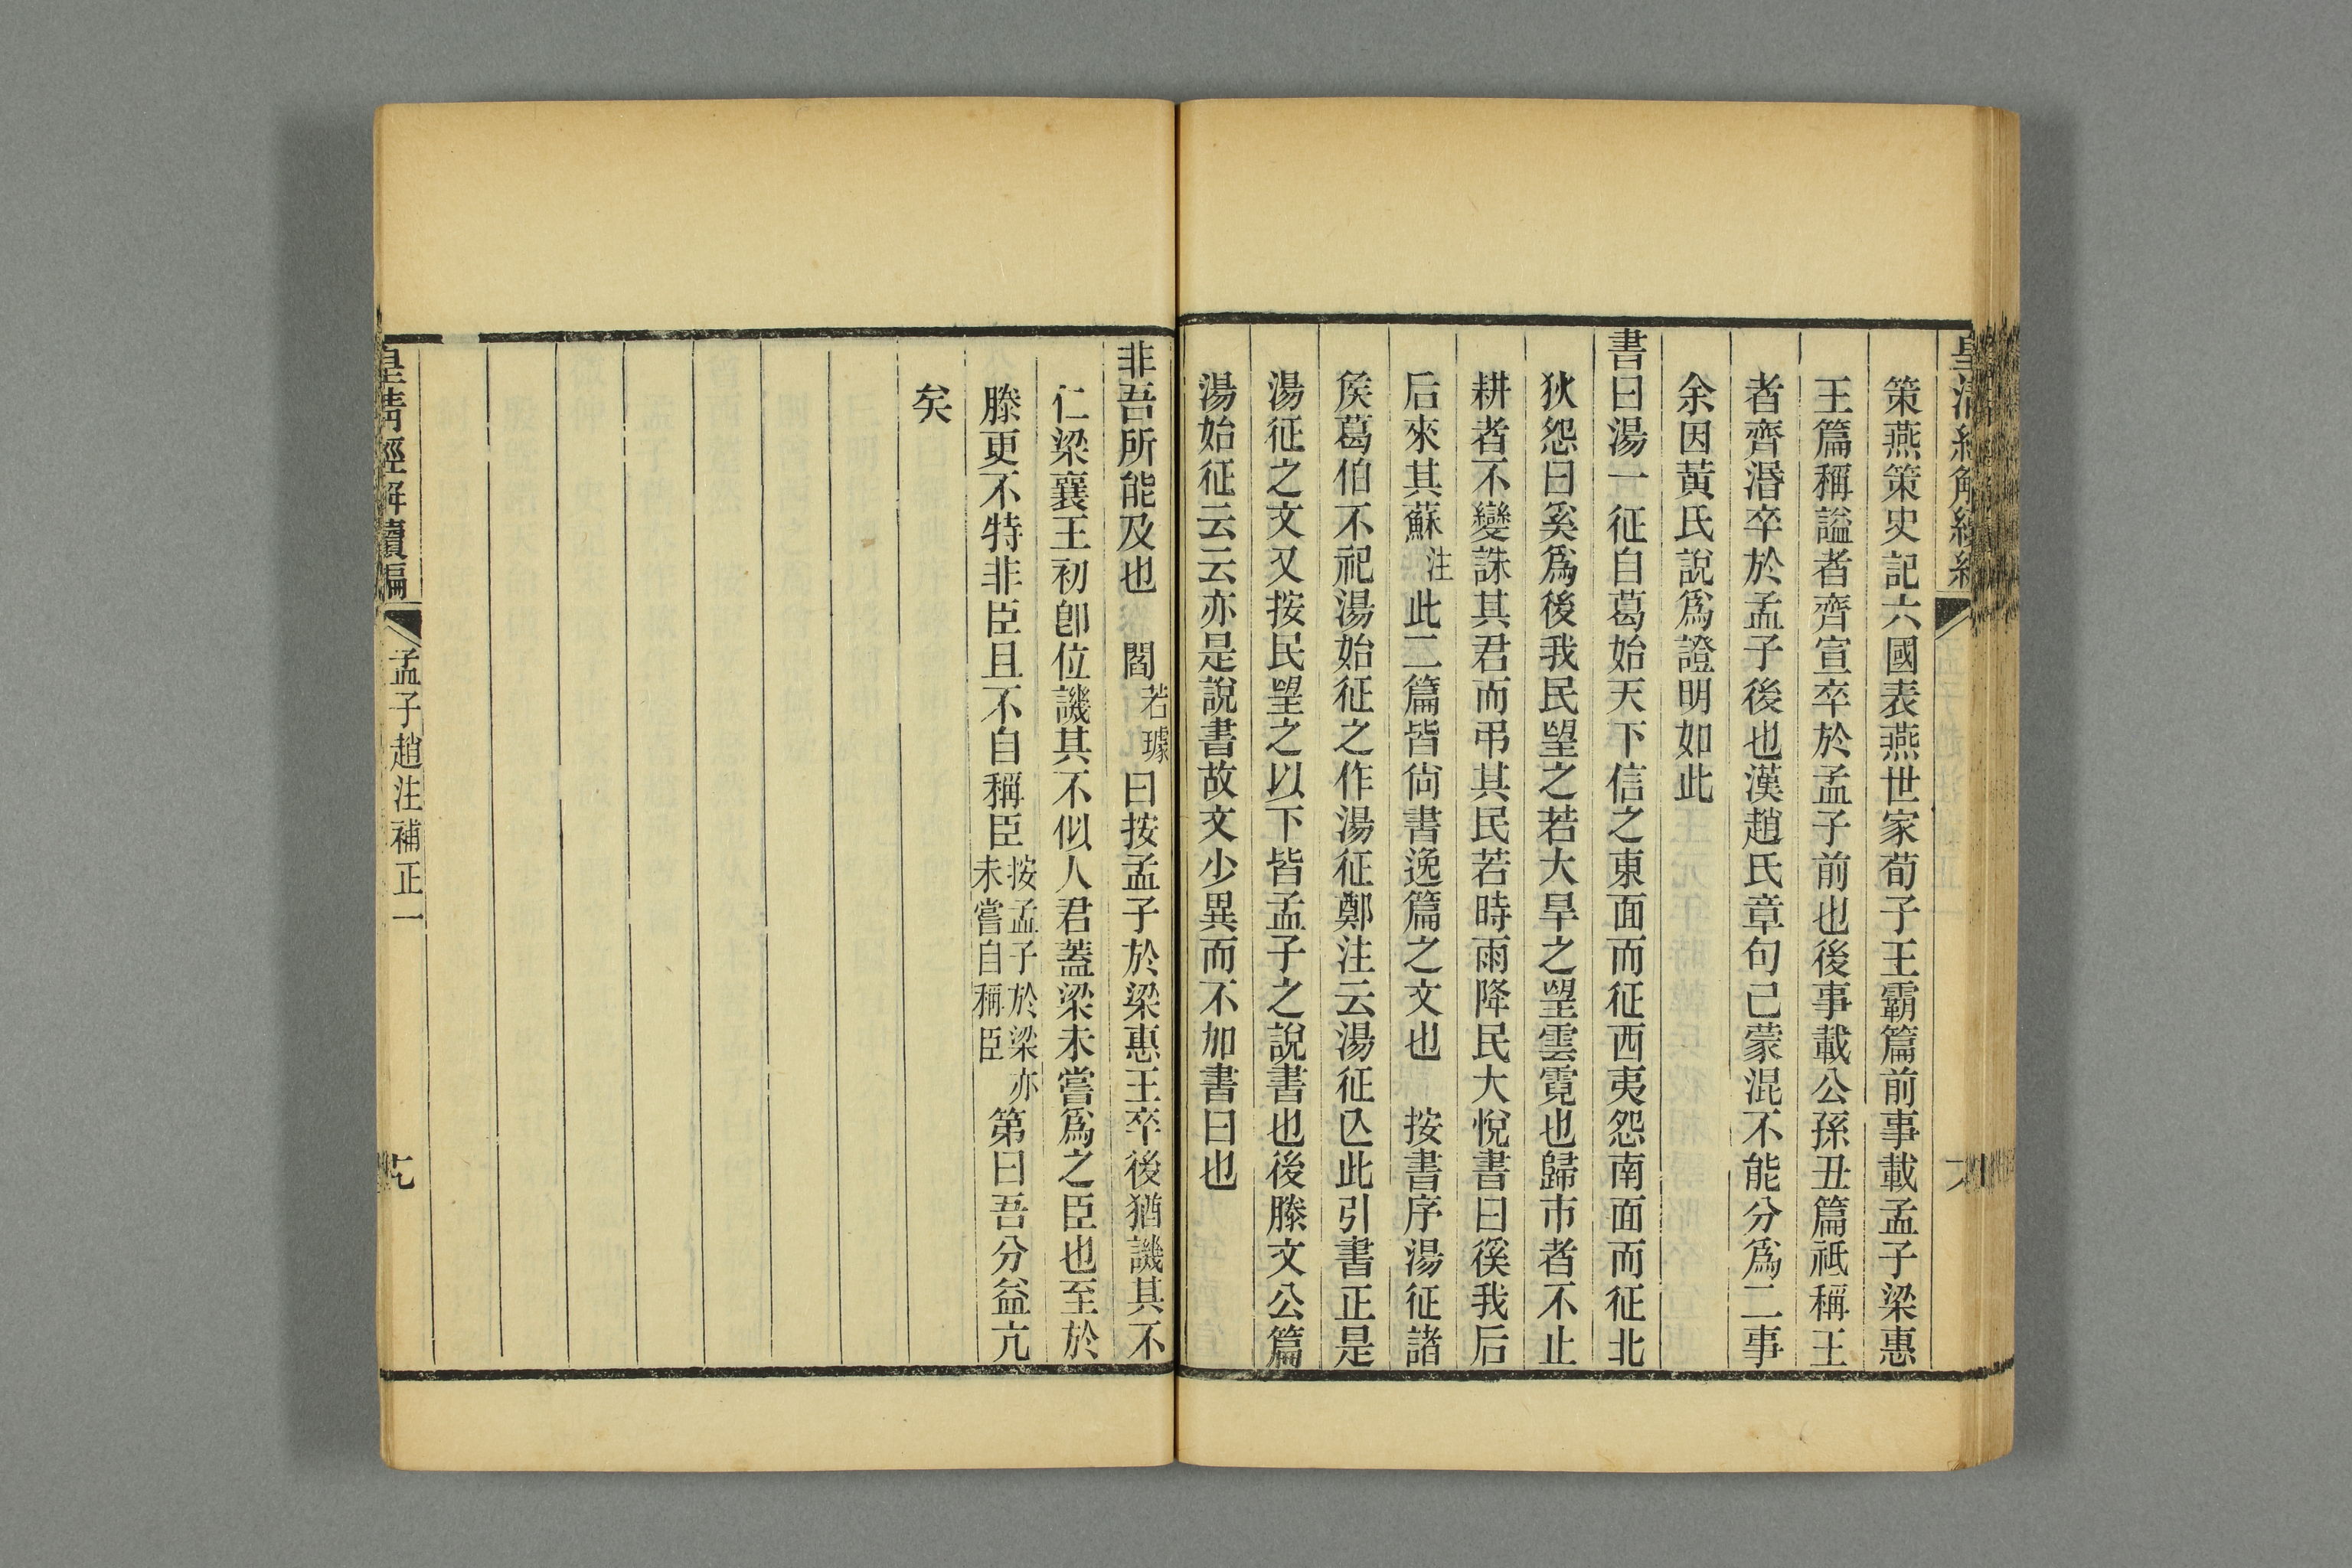 策燕策史記六國表燕世家荀子王霸篇前事載孟子梁惠
王篇稱謚者齊宣卒於孟子前也後事載公孫丑篇祇稱王
者齊湣卒於孟子後也漢趙氏章句已蒙混不能分爲二事
余因黃氏說爲證明如此
書曰湯一征自葛始天下信之東面而征西夷怨南面而征北
狄怨曰奚爲後我民朢之若大旱之朢雲霓也歸市者不止
耕者不變誅其君而弔其民若時雨降民大悅書曰徯我后
后來其蘇 注 此二篇皆尙書逸篇之文也 按書序湯征諸
矦葛伯不祀湯始征之作湯征鄭注云湯征亾此引書正是
湯征之文又按民朢之以下皆孟子之說書也後滕文公篇
湯始征云云亦是說書故文少異而不加書曰也
非吾所能及也 閻若璩曰按孟子於梁惠王卒後猶譏其不
仁梁襄王初卽位譏其不似人君蓋梁未嘗爲之臣也至於
滕更不特非臣且不自稱臣按孟子於梁亦未嘗自稱臣第曰吾分益亢
矣
皇清經解續編 孟子趙注補正一